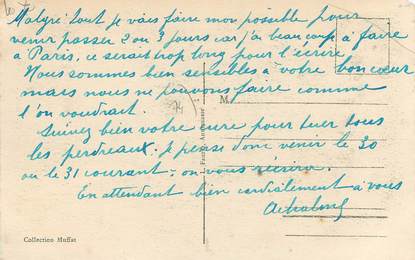 Malgré tout je vais faire mon possible pour
venir passer 2 ou 3 jours car j'ai beaucoup à faire
à Paris, ce serait trop long pour l'écrire
Nous sommes bien sensibles à votre bon cœur
mais nous ne pouvons faire comme
l'on voudrait.
M
Suivez bien votre cure pour tuer tous
les perdreaux. Je pense donc venir le 30
ou le 31 courant : on vous récrira.
En attendant bien cordialement à vous
Collection Moffat